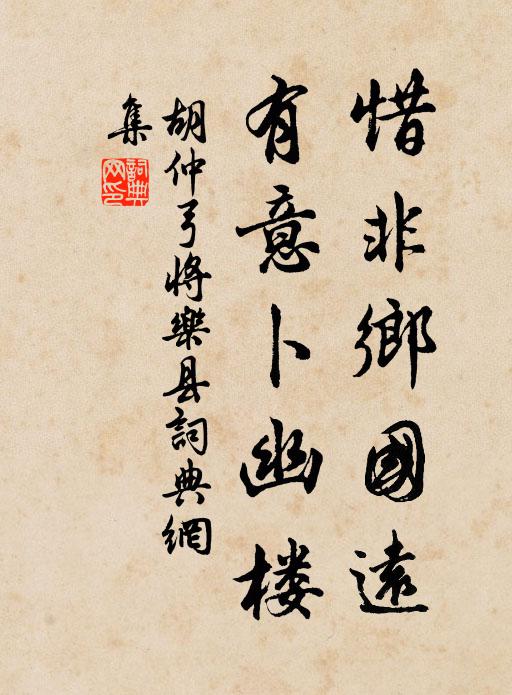 惜非鄉國遠
有意卜幽楼
胡仲弓将樂县詞典網
集
詞典網印